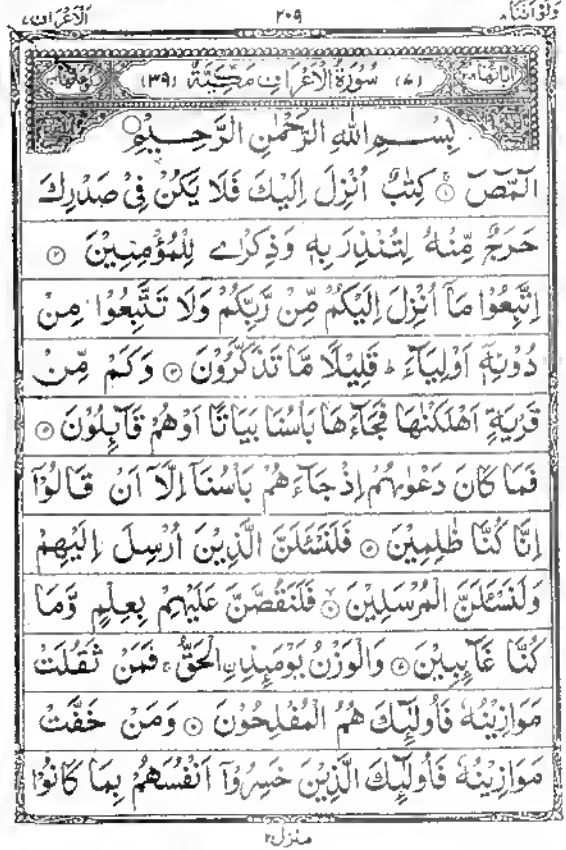 ولواننا ٨ ٢٠٩ الاعراف ٧
(٧) سُوْرَةُ الْاَعْرَافِ مَكِّيَّةٌ (٣٩)
بِسْــــمِ اللّٰهِ الرَّحْمٰنِ الرَّحِـــيْمِ
الٓمّٓصٓ ۝١ كِتٰبٌ اُنْزِلَ اِلَيْكَ فَلَا يَكُنْ فِيْ صَدْرِكَ
حَرَجٌ مِّنْهُ لِتُنْذِرَ بِهٖ وَذِكْرٰى لِلْمُؤْمِنِيْنَ ۝٢
اِتَّبِعُوْا مَآ اُنْزِلَ اِلَيْكُمْ مِّنْ رَّبِّكُمْ وَلَا تَتَّبِعُوْا مِنْ
دُوْنِهٖٓ اَوْلِيَآءَ ؕ قَلِيْلًا مَّا تَذَكَّرُوْنَ ۝٣ وَكَمْ مِّنْ
قَرْيَةٍ اَهْلَكْنٰهَا فَجَآءَهَا بَاْسُنَا بَيَاتًا اَوْهُمْ قَآىِٕلُوْنَ ۝٤
فَمَا كَانَ دَعْوٰىهُمْ اِذْ جَآءَهُمْ بَاْسُنَآ اِلَّآ اَنْ قَالُوْٓا
اِنَّا كُنَّا ظٰلِمِيْنَ ۝٥ فَلَنَسْـَٔلَنَّ الَّذِيْنَ اُرْسِلَ اِلَيْهِمْ
وَلَنَسْـَٔلَنَّ الْمُرْسَلِيْنَ ۝٦ فَلَنَقُصَّنَّ عَلَيْهِمْ بِعِلْمٍ وَّمَا
كُنَّا غَآىِٕبِيْنَ ۝٧ وَالْوَزْنُ يَوْمَىِٕذِ ۨالْحَقُّ ۚ فَمَنْ ثَقُلَتْ
مَوَازِيْنُهٗ فَاُولٰٓىِٕكَ هُمُ الْمُفْلِحُوْنَ ۝٨ وَمَنْ خَفَّتْ
مَوَازِيْنُهٗ فَاُولٰٓىِٕكَ الَّذِيْنَ خَسِرُوْٓا اَنْفُسَهُمْ بِمَا كَانُوْا
منزل٢